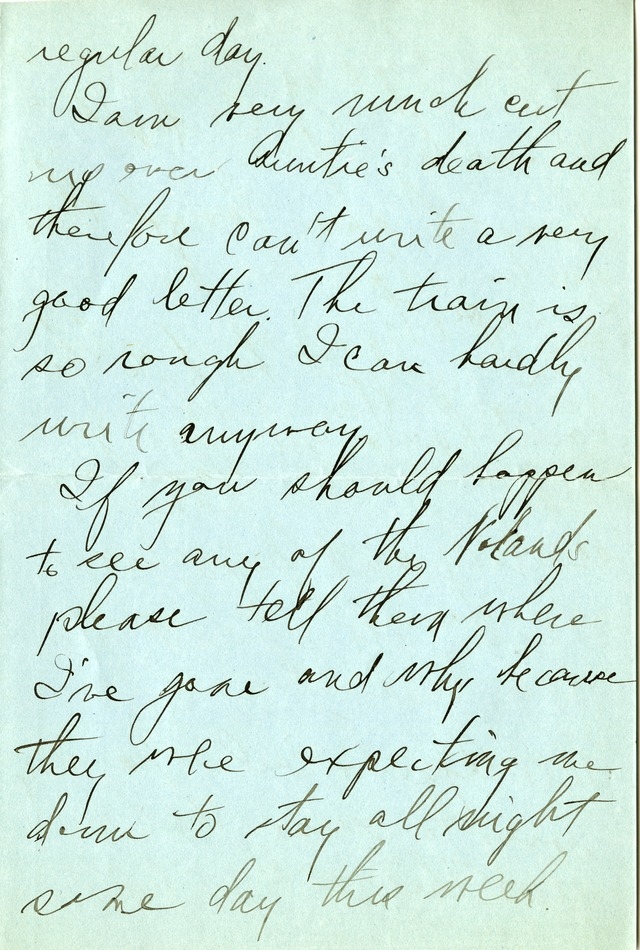 regular day.
I am very much cut
up over Auntie's death and
therefore can't write a very
good letter. The train is
so rough I can hardly
write anyway.
If you should happen
to see any of the Nolands
please tell them where
I've gone and why because
they were expecting me
down to stay all night
some day this week.